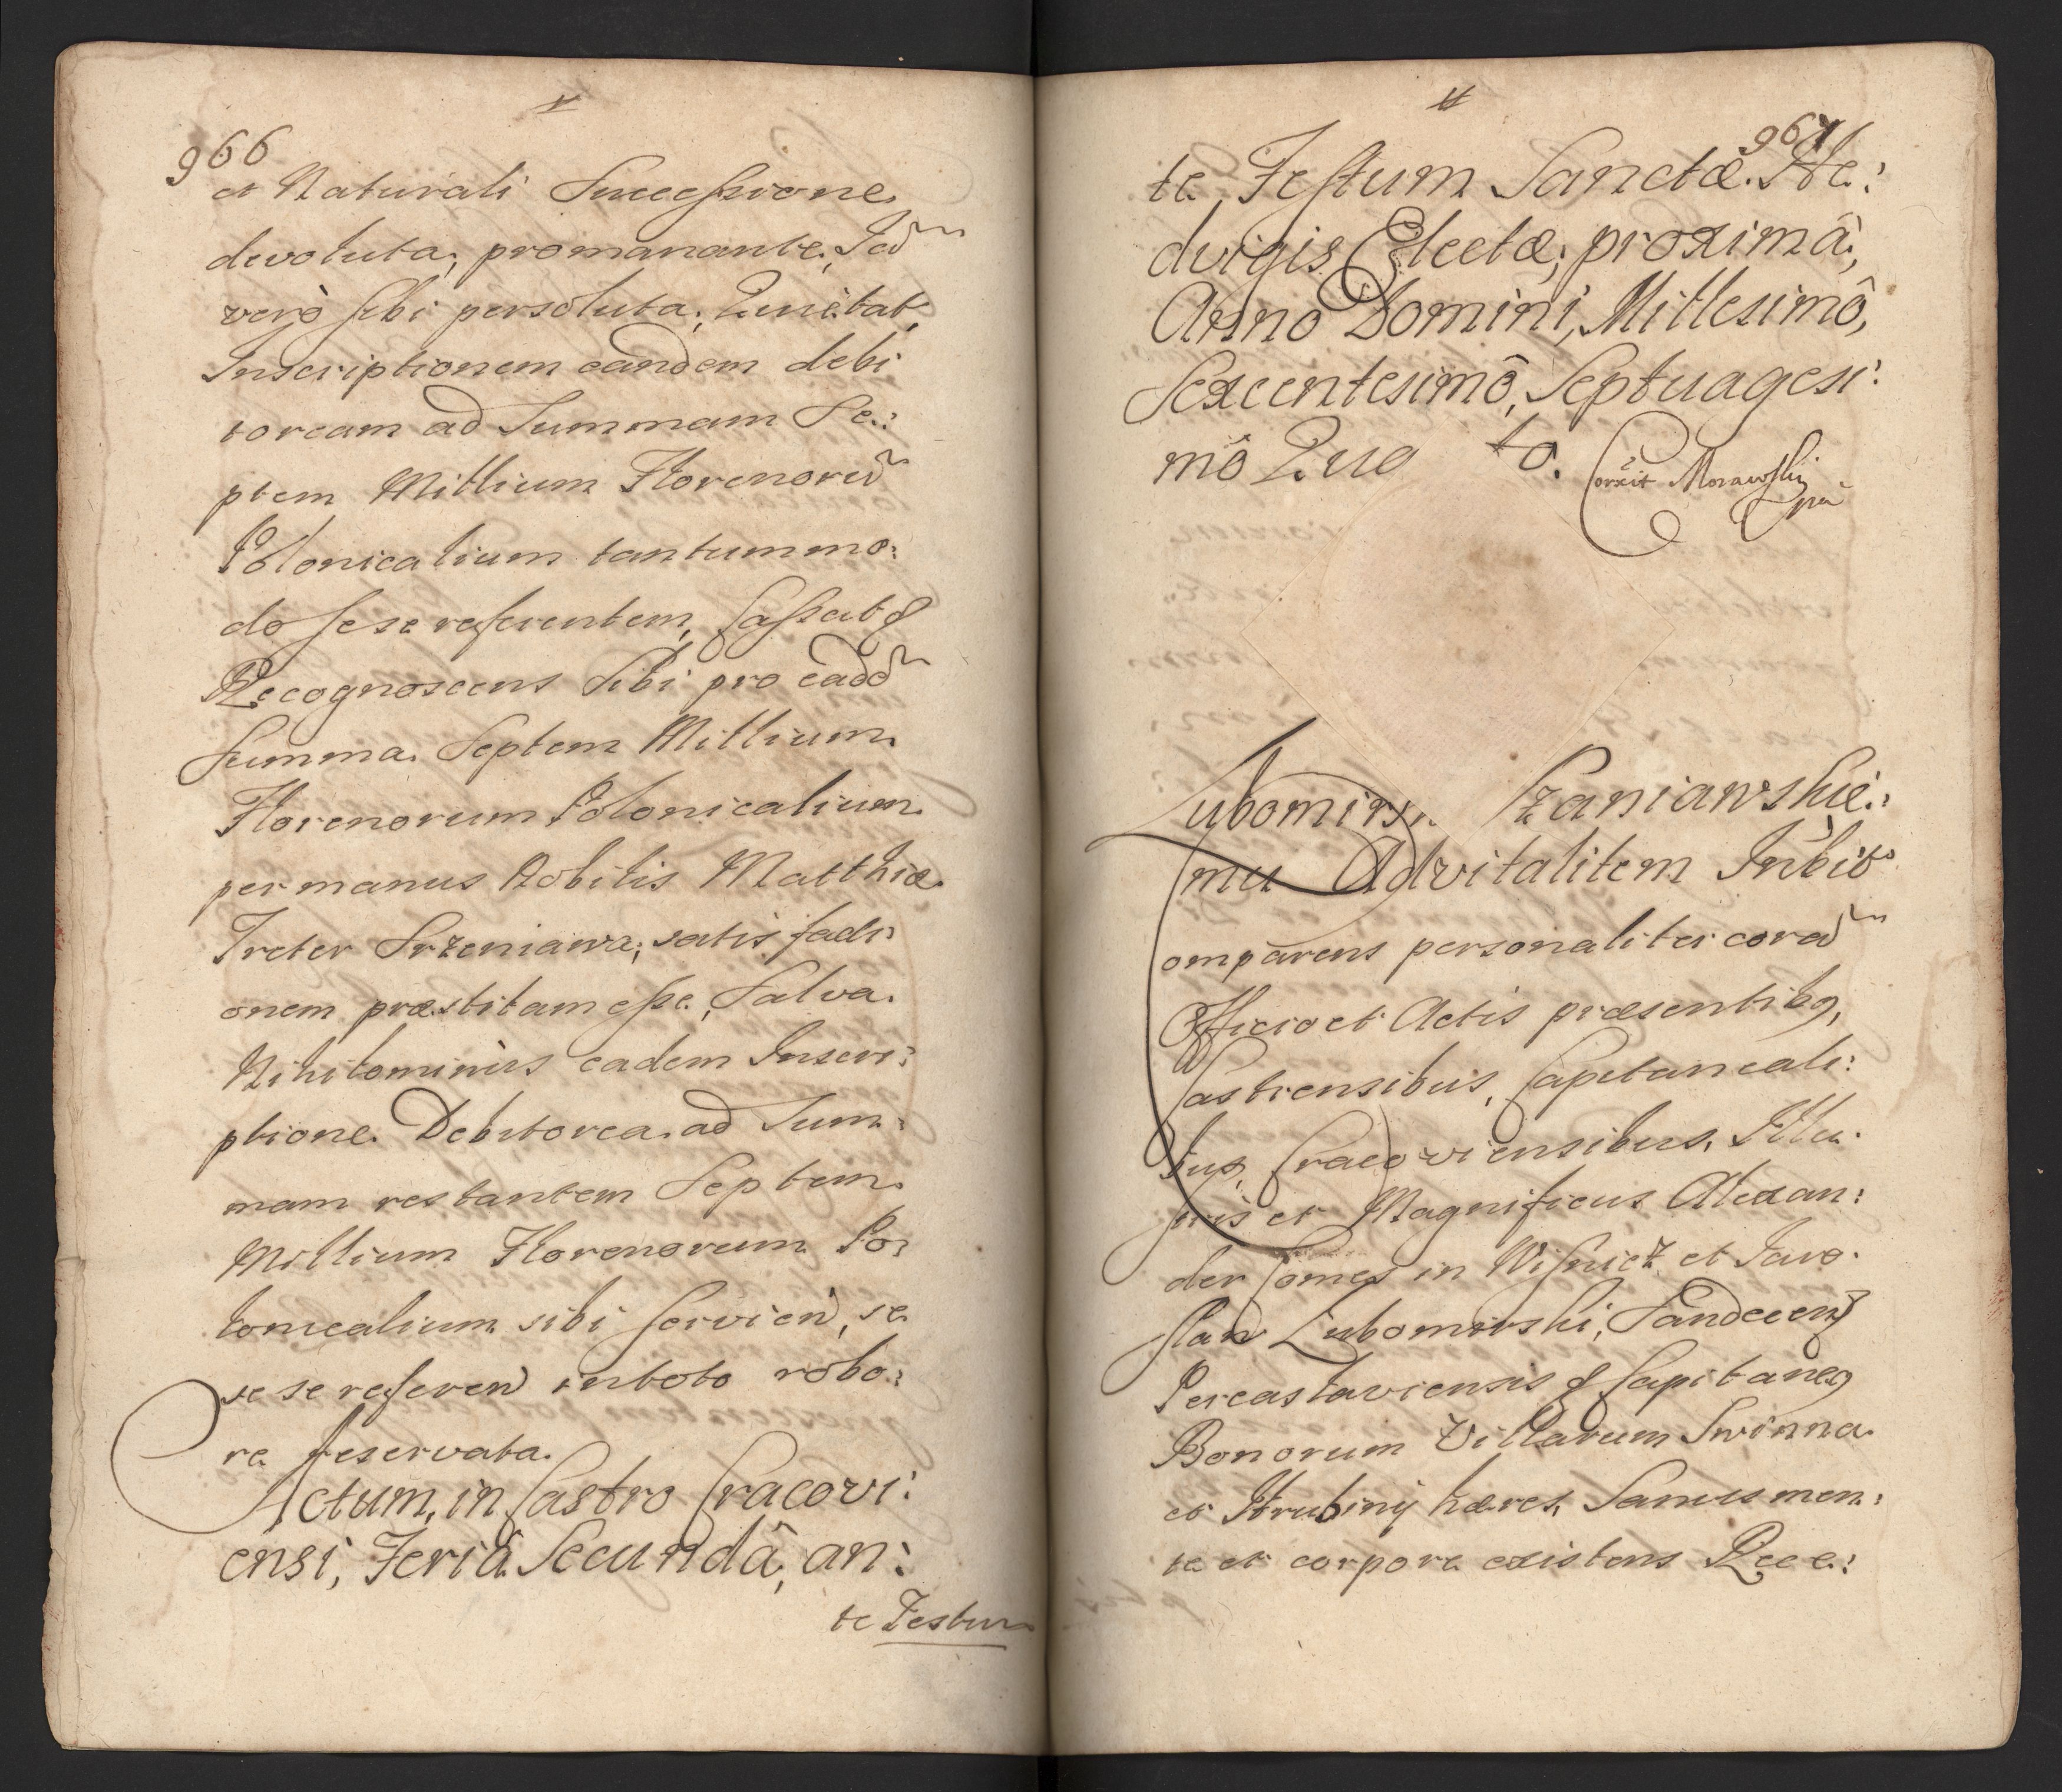 966
et Naturali Successione
devoluta, promanante, Jam
vero sibi persoluta, Quietat,
Inscriptionem eandem debi
toream ad Summam Se:
ptem Millium Florenorum
Polonicalium tantummo:
do sese referentem, Cassat &
Recognoscens Sibi pro eadd
Summa Septem Millium
Florenorum Polonicalium
per manus Nobilis Matthiæ
Treter Srzeniawa, satisfacti
onem præstitam esse, Salva
Nihilominus eadem Inscri:
ptione Debitorea ad Sum:
mam restantem Septem
Millium Florenorum Po:
lonicalium sibi servien, se
se se referen in toto robo:
re reservata.
Actum, in Castro Cracovi:
ensi, Feriâ Secundâ, an:
te Festum
967
te Festum Sanctæ He:
dvigis Electæ, proximâ,
Anno Domini, Millesimô,
Sexcentesimô, Septuagesi:
mô Qua to.
Corxit Morawski
mpa
Lubomirs Szaniawskie:
mu Advitalitem Inbit
omparens personaliter coram
Officio et Actis præsentibus,
Castrensibus, Capitaneali:
bus, Cracoviensibus, Illu:
stris et Magnificus Alexan:
der Comes in Wisnicz et Jaro:
slaw Lubomirski, Sandecens
Pereaslaviensis & Capitaneus
Bonorum Villarum Swinna
et hæres, Sanus men:
te et corpore existens Rec: